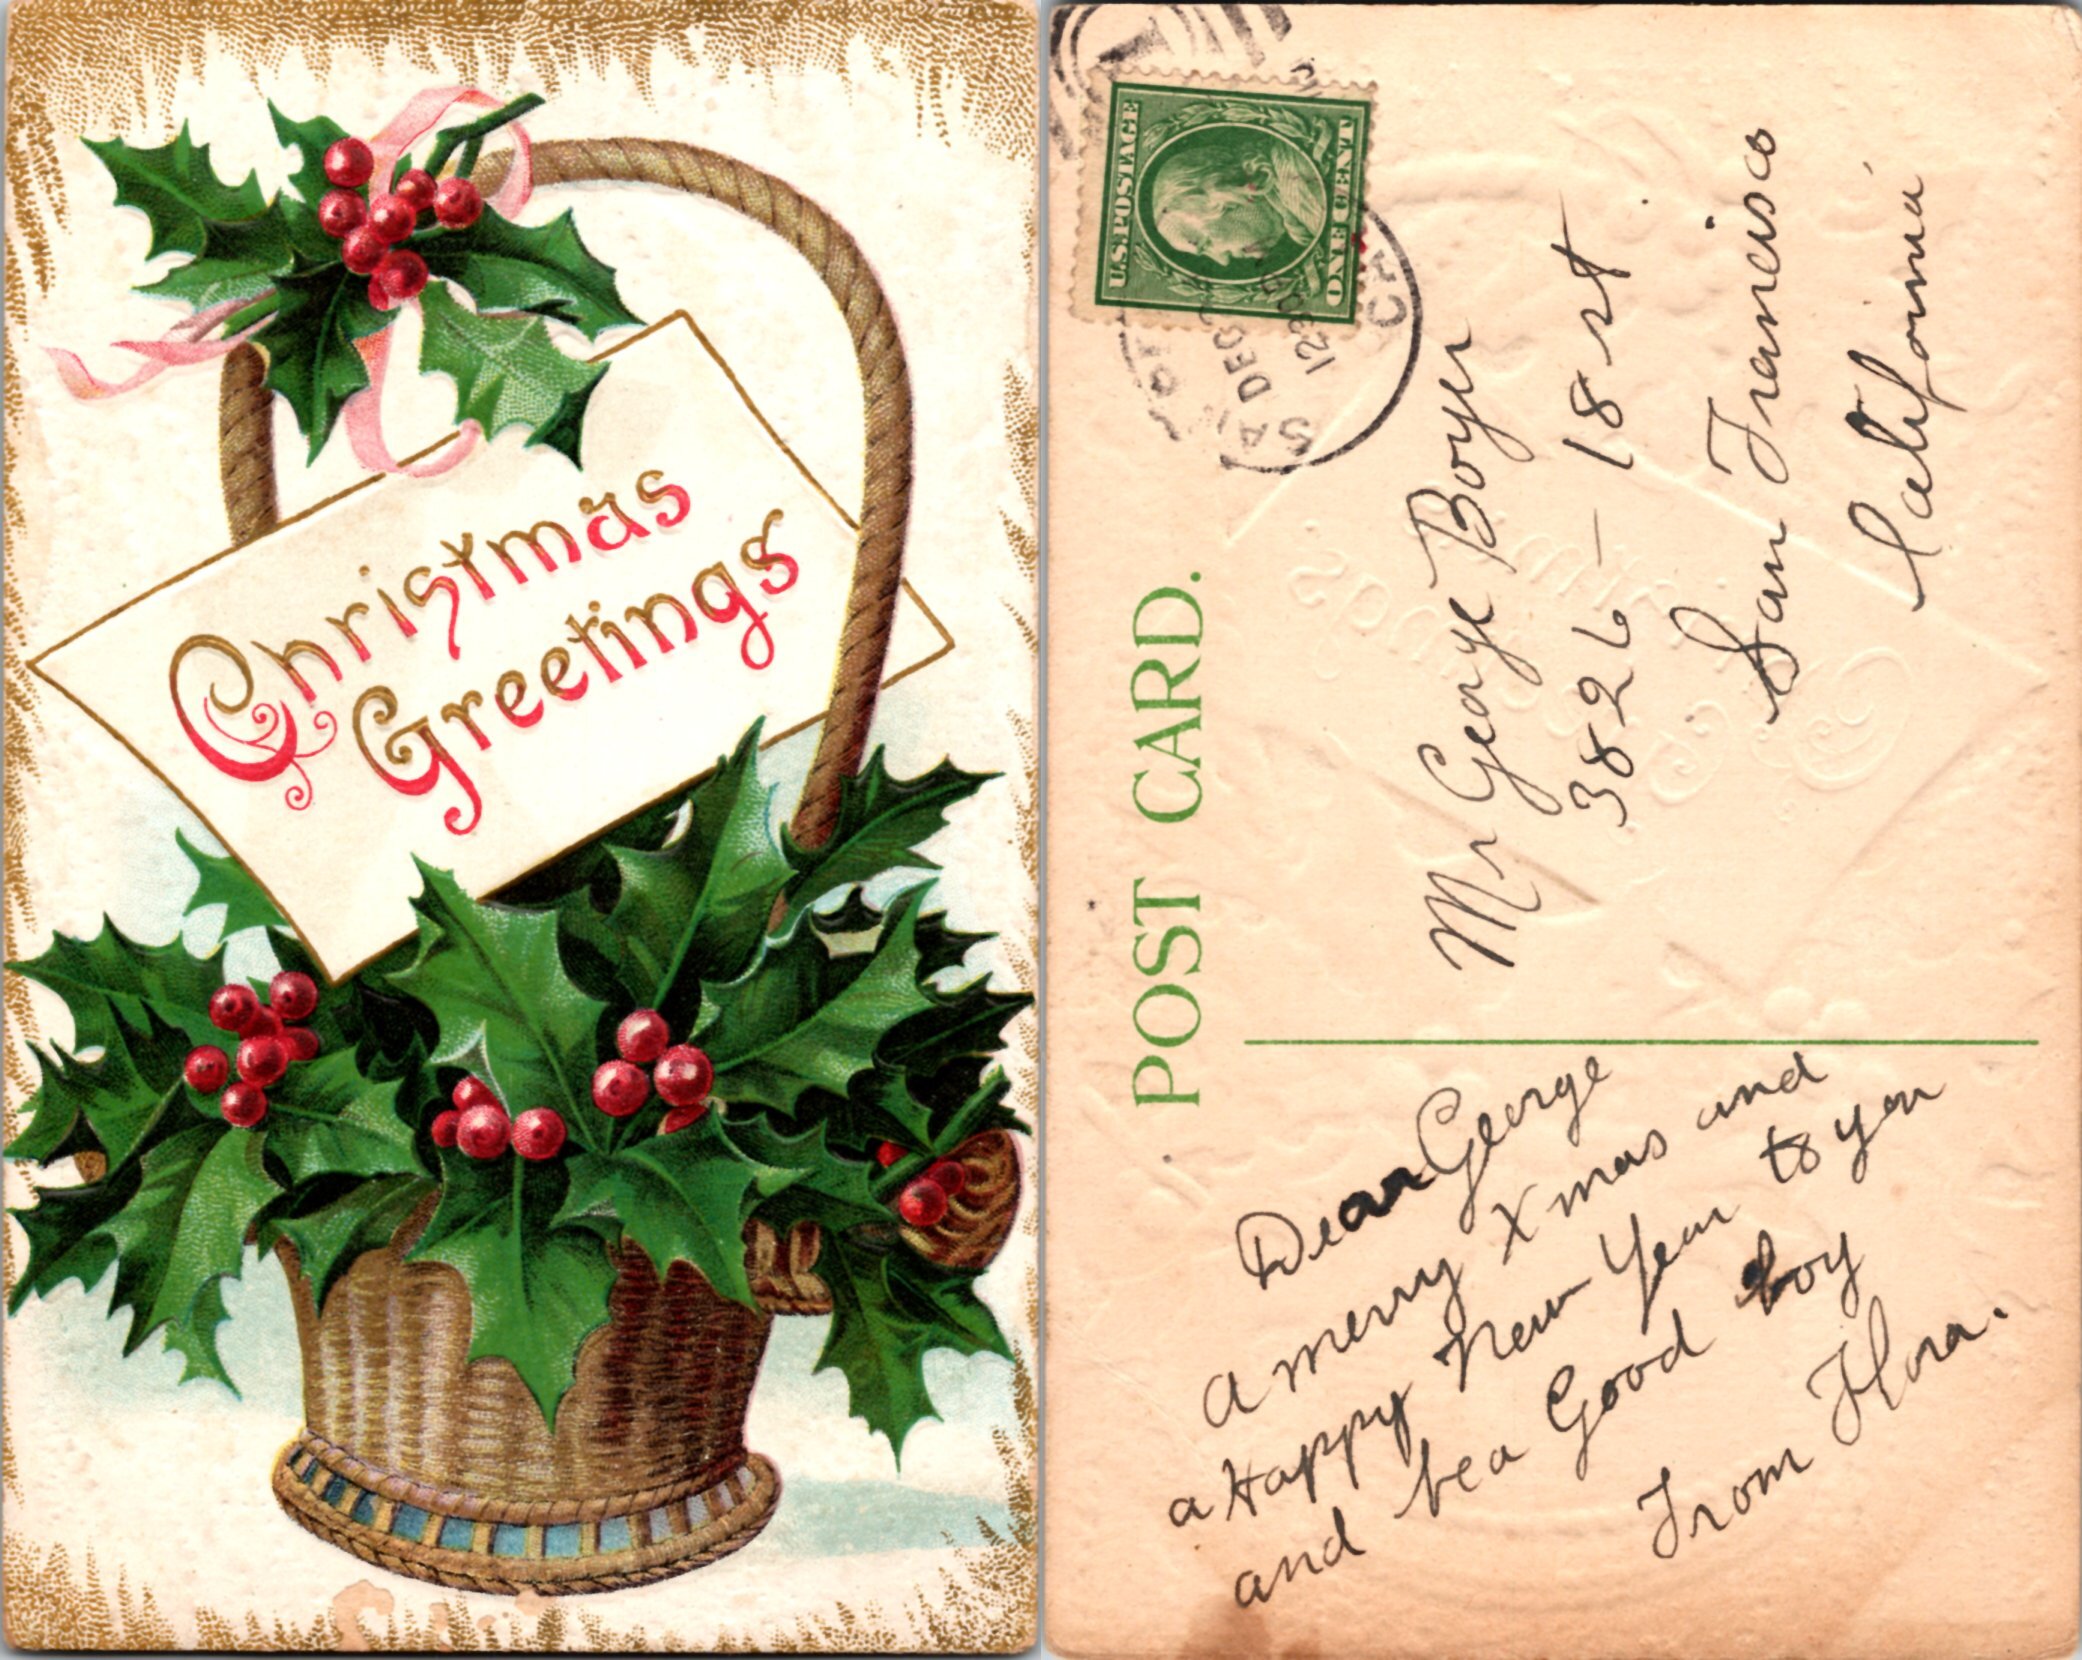 Christmas
Greetings
POST CARD.
U.S. POSTAGE
ONE CENT
DEC
1230
CA
Mr George Boyer
3826 - 18 st.
San Francisco
California
Dear George
a merry Xmas and
a Happy New Year to you
and be a Good boy
From Flora.